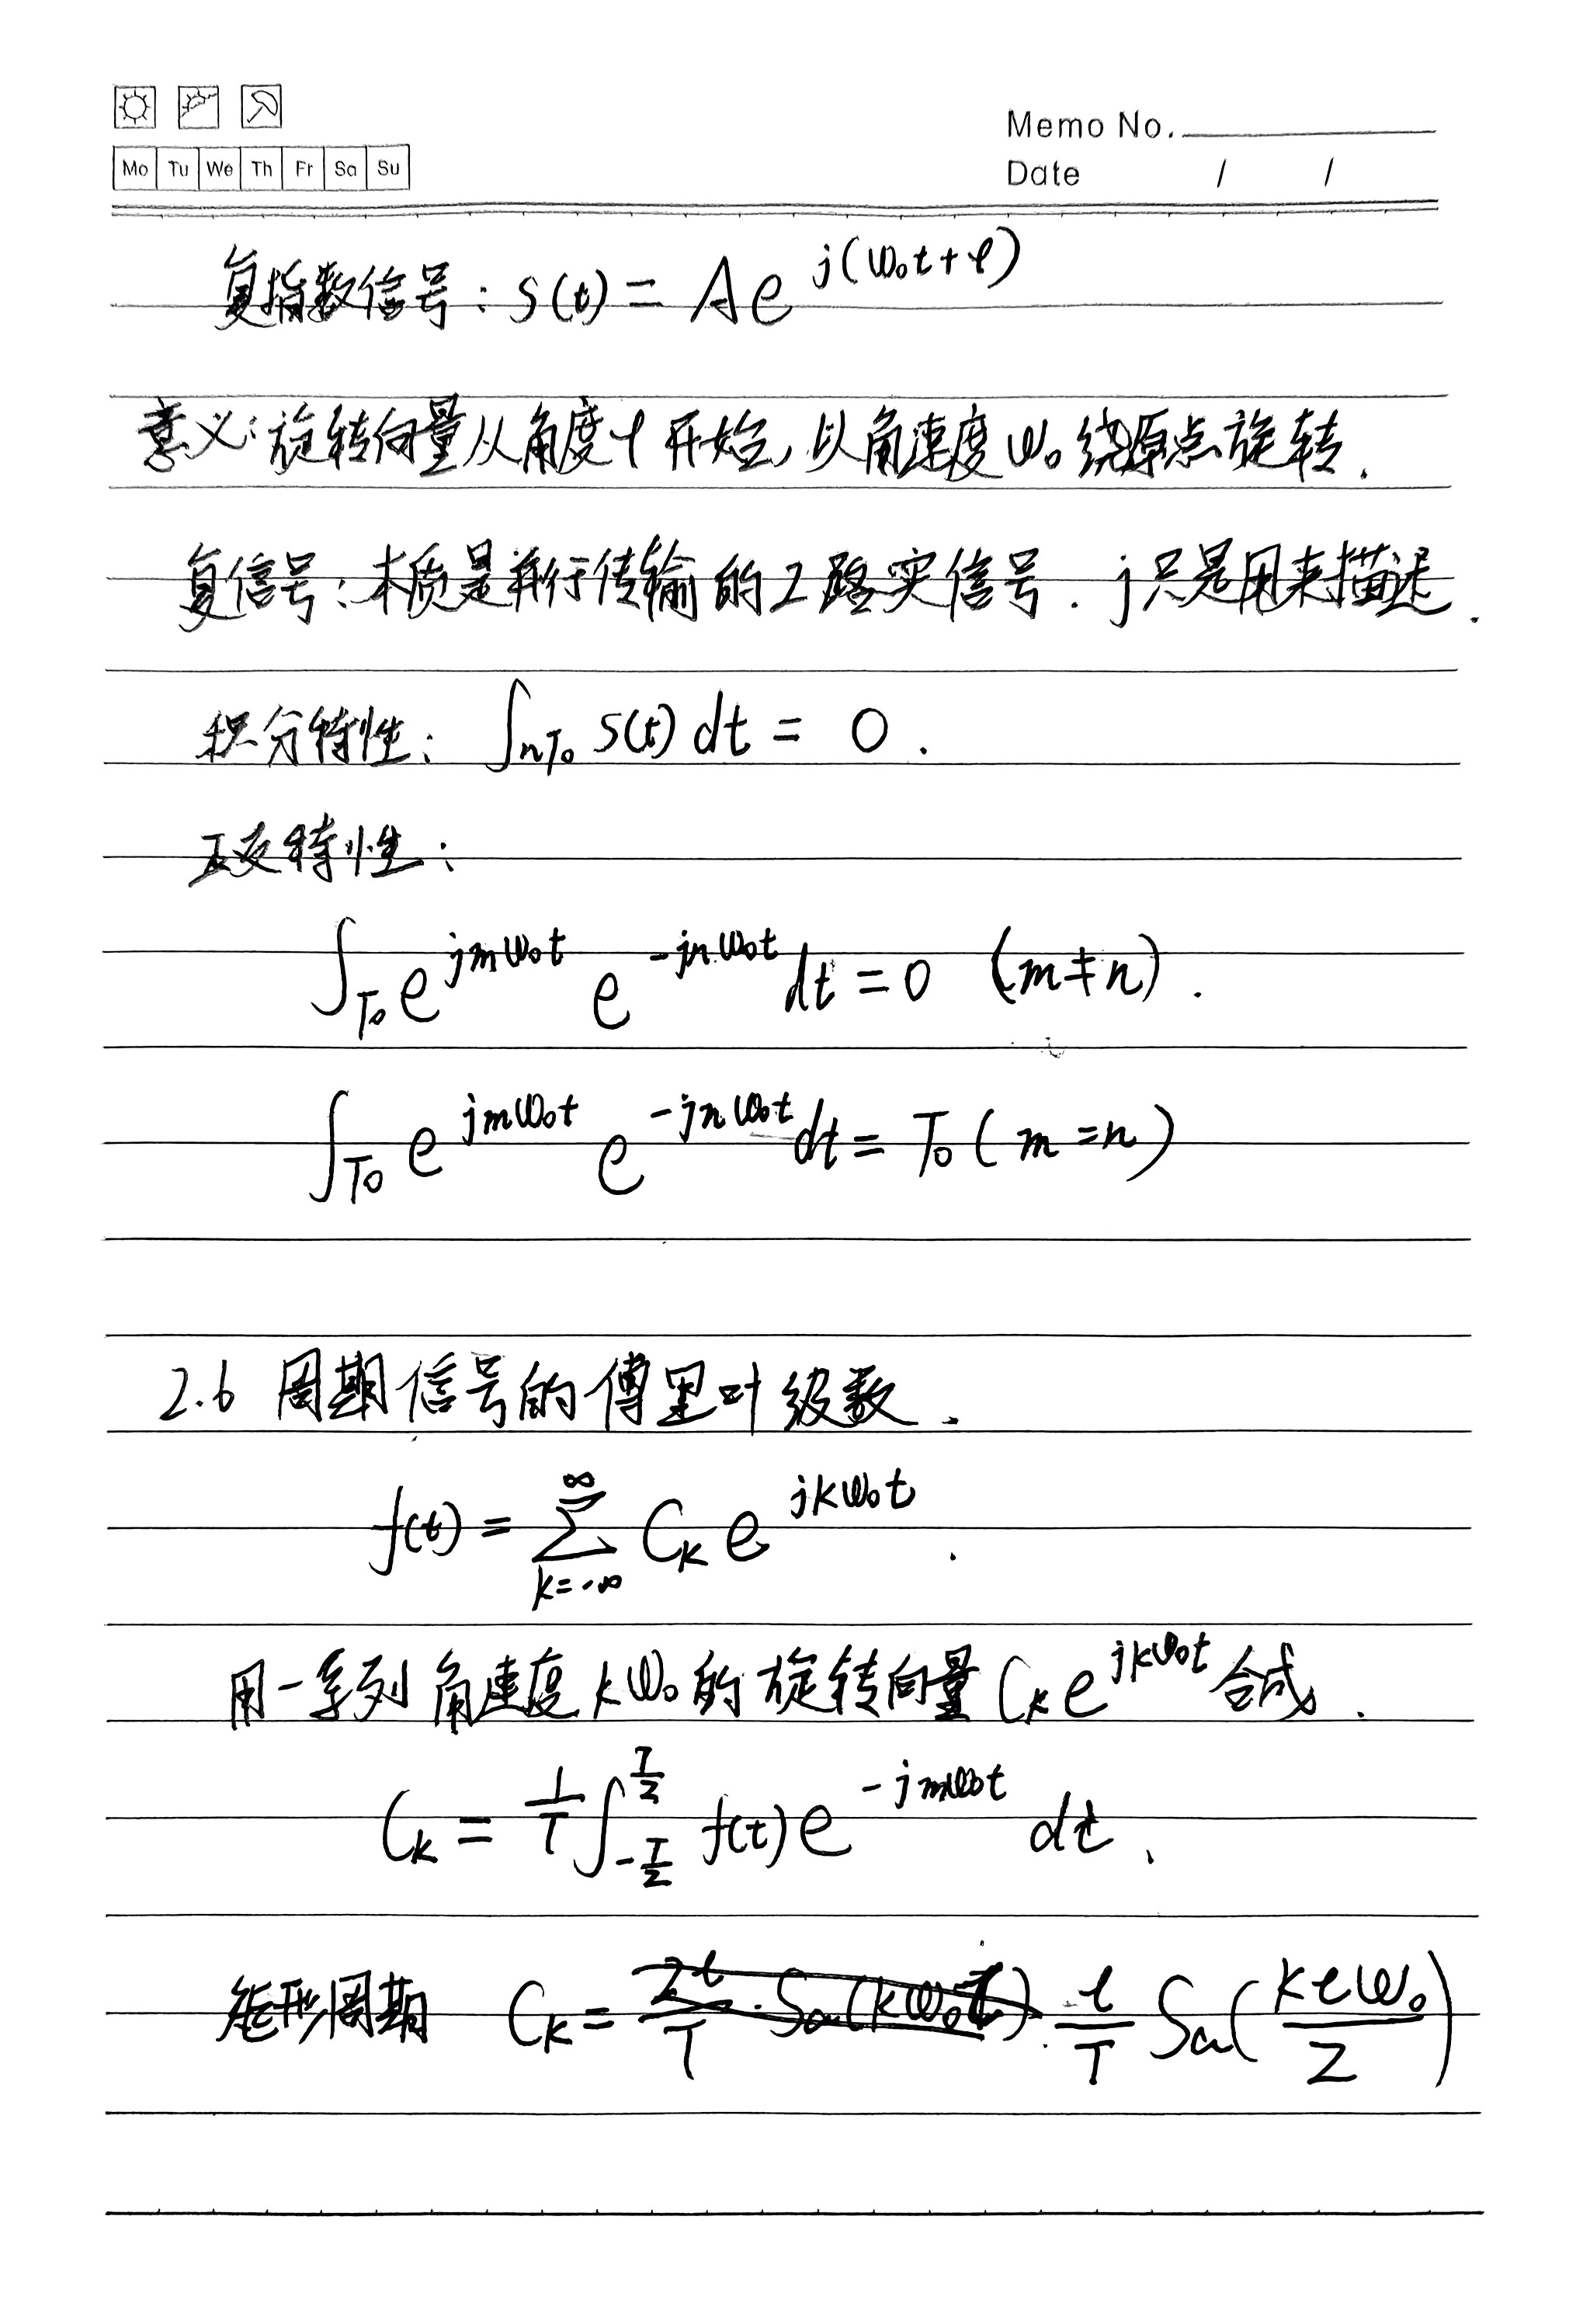 Mo Tu We Th Fr Sa Su
Memo No.
Date / /
复指数信号: s(t) = Ae^{j(ω₀t+φ)}
意义: 旋转向量从角度φ开始, 以角速度ω₀绕原点旋转.
复信号: 本质是并行传输的2路实信号. j只是用来描述.
积分特性: ∫_{nT₀} s(t) dt = 0.
正交特性:
∫_{T₀} e^{jmω₀t} e^{-jnω₀t} dt = 0 (m≠n).
∫_{T₀} e^{jmω₀t} e^{-jnω₀t} dt = T₀ (m=n)
2.6 周期信号的傅里叶级数.
f(t) = ∑_{k=-∞}^{∞} C_k e^{jkω₀t}.
用一系列角速度kω₀的旋转向量C_k e^{jkω₀t}合成.
C_k = 1/T ∫_{-T/2}^{T/2} f(t) e^{-jmω₀t} dt.
矩形周期 C_k = τ/T Sa(kτω₀/2)